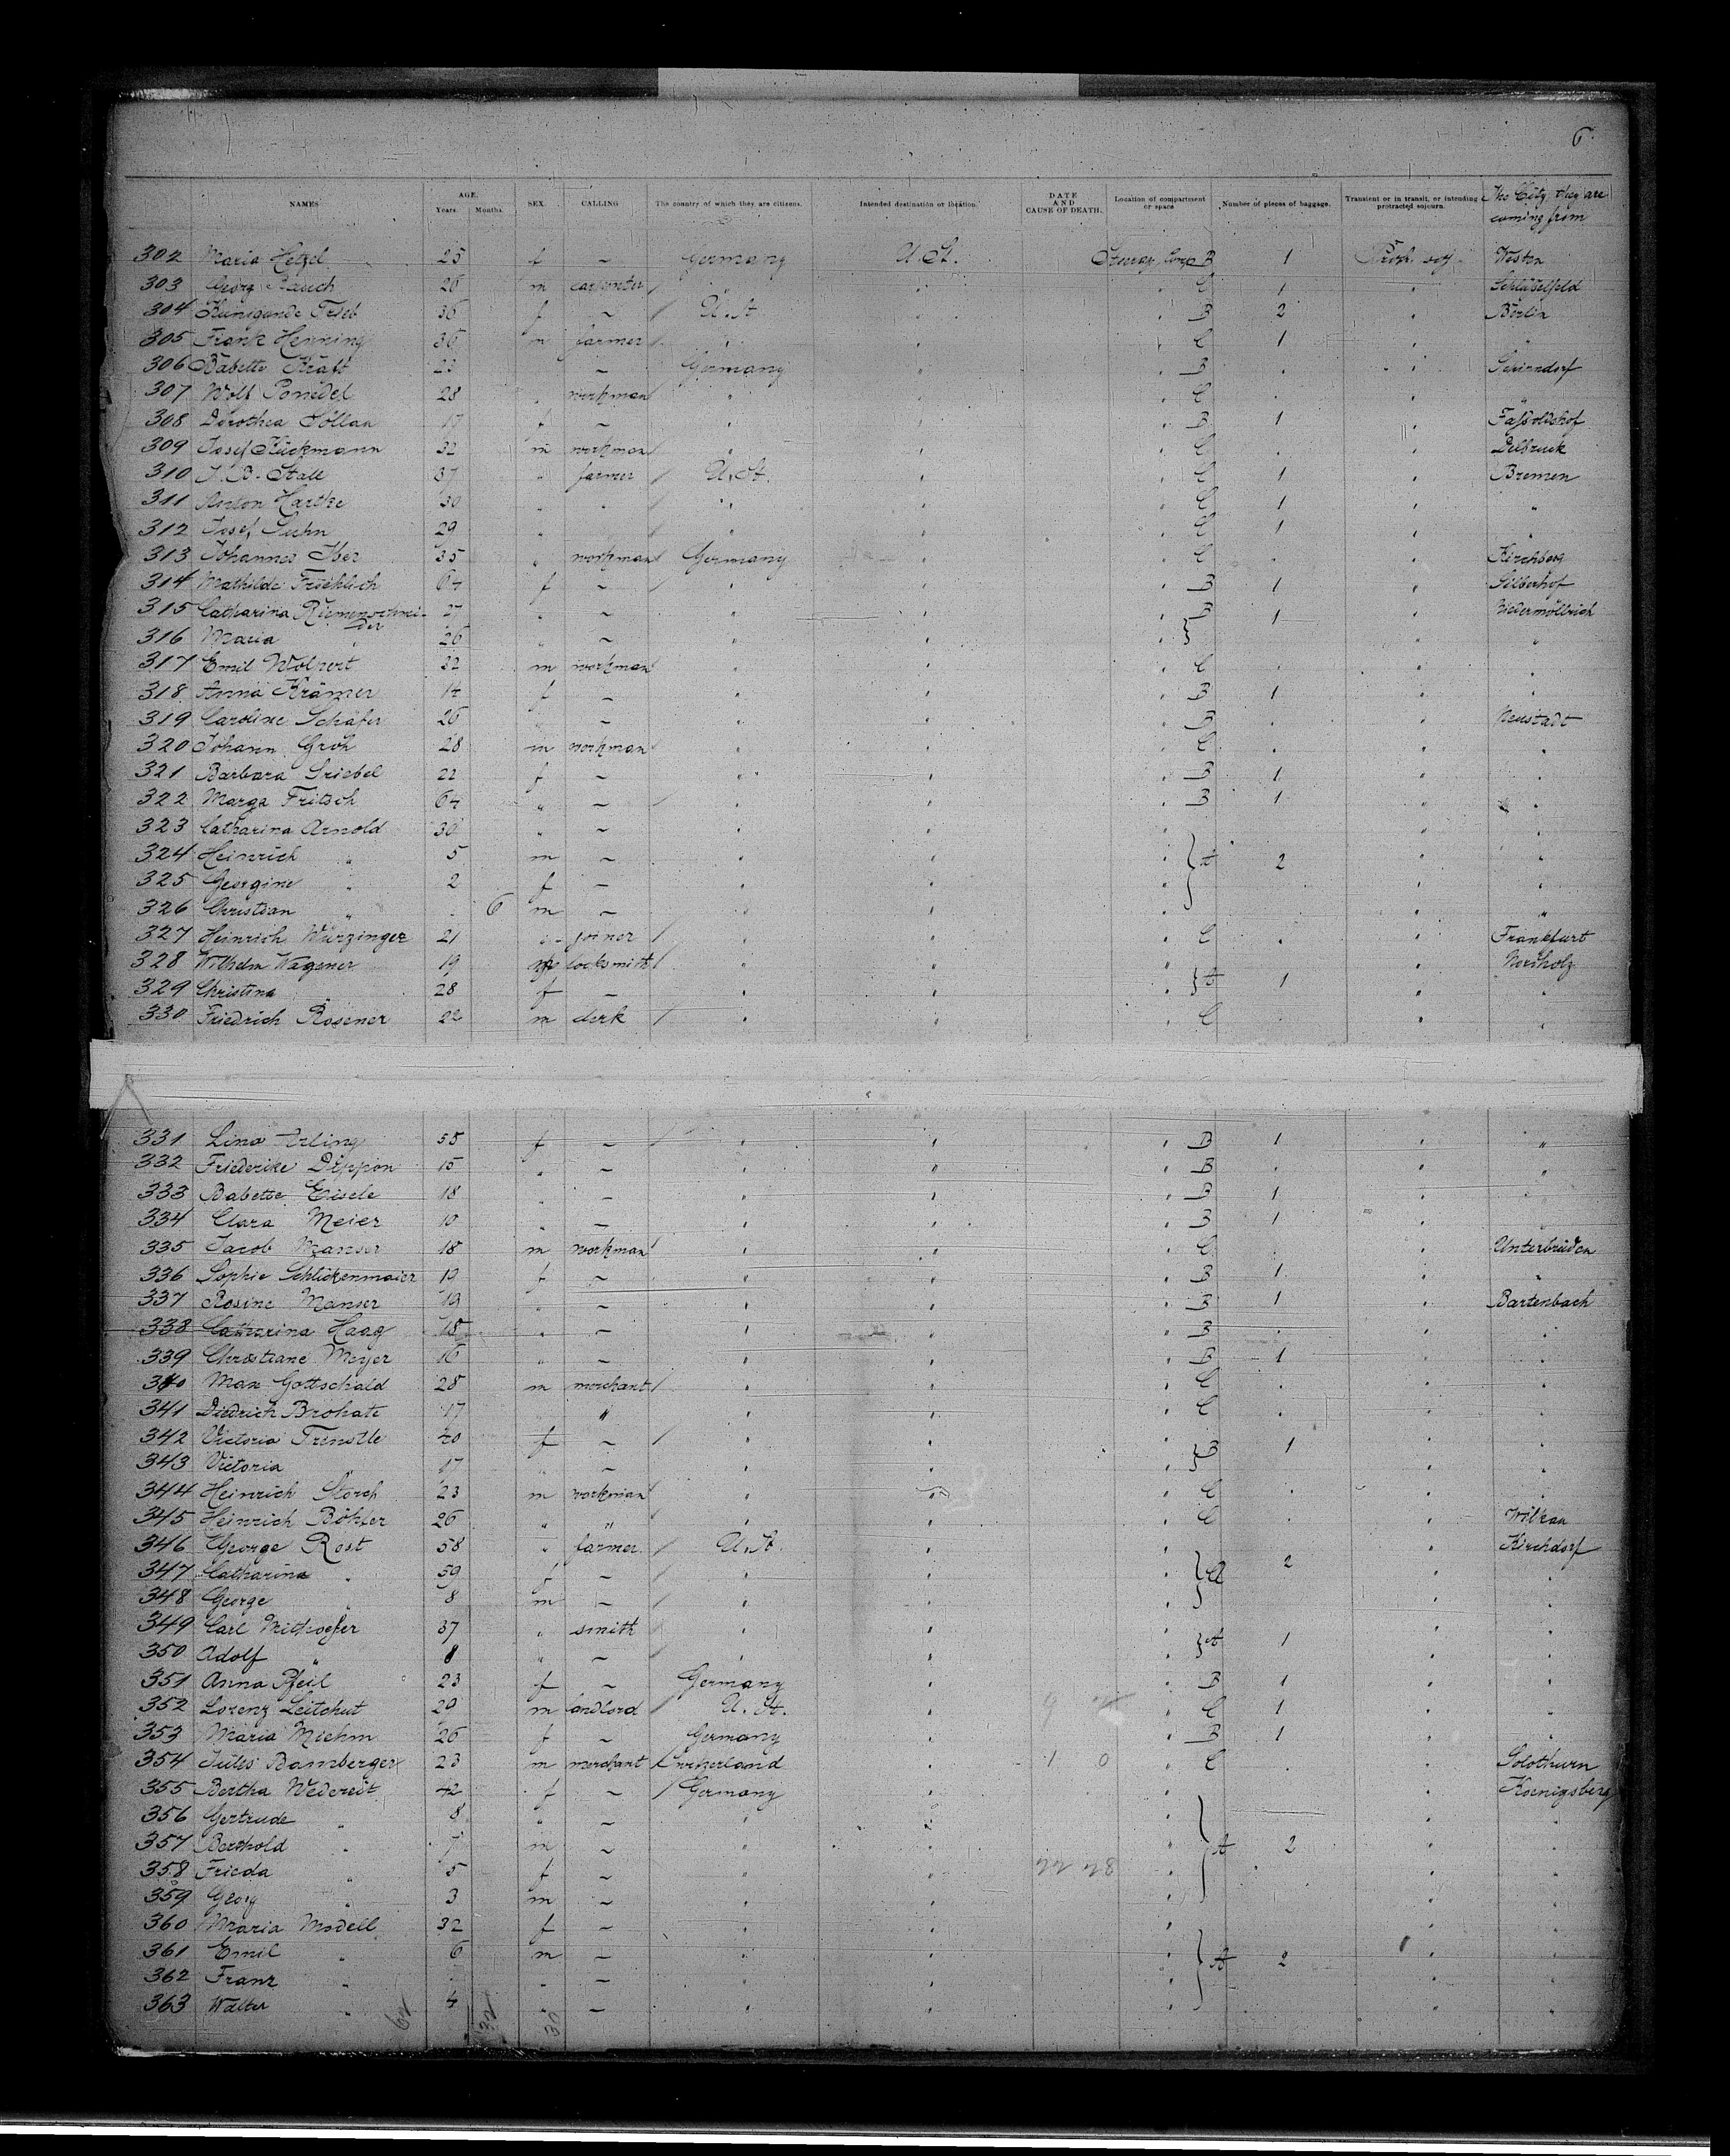 6.
NAMES
AGE.
Years. Months.
SEX.
CALLING
The country of which they are citizens.
Intended destination or location.
DATE AND CAUSE OF DEATH.
Location of compartment or space
Number of pieces of baggage.
Transient or in transit, or intending protracted sojourn.
The City they are coming from
302 Maria Hetzel 25 f ~ Germany U St. B 1 Weston
303 Georg Rauch 26 m carpenter / " " " C 1 " Schlüsselfeld
304 Kunigunde 36 f ~ / U. St " " B 2 " Berlin
305 Frank Henning 36 m farmer / " " " C 1 " "
306 Babette Kraft 23 ~ Germany " " B . " Schirndorf
307 Wolf Ponfidel 28 " workman " " " C . " "
308 Dorothea Söllan 17 f ~ " " " B 1 " Faßoldshof
309 Josef Stückmann 32 m workman " " " C . " Delbruck
310 J. B. Stall 37 " farmer / U. St. " " C 1 " Bremen
311 Anton Hartke 30 " " / " " " C 1 " "
312 Josef Suhn 29 " " / " " " C 1 " "
313 Johannes Iber 35 " workman Germany " " C . " Kirchberg
314 Mathilde Froehlich 64 f ~ / " " " B 1 " Silberhof
315 Catharina Riemenschnei- 27 " ~ " " " B 1 " Niedermöllrich
der
316 Maria " 26 " ~ " " " " "
317 Emil Wolpert 32 m workman " " " C . " "
318 Anna Krämer 14 f ~ " " " B 1 " "
319 Caroline Schäfer 26 " ~ " " " B . " Neustadt
320 Johann Groh 28 m workman " " " C . " "
321 Barbara Griebel 22 f ~ " " " B 1 " "
322 Marga Fritsch 64 " ~ / " " " B 1 " "
323 Catharina Arnold 30 " ~ " " " " "
324 Heinrich " 5 m ~ " " " A 2 " "
325 Georgine " 2 f ~ " " " " "
326 Christian " . 6 m ~ " " " " "
327 Heinrich Würzinger 21 " joiner / " " " C . " Frankfurt
328 Wilhelm Wagener 19 m locksmith / " " " " Nordholz
329 Christina 28 f ~ " " " A 1 " "
330 Friedrich Rosener 22 m clerk / " " " C . " "
331 Lina Erling 55 f ~ / " " " B 1 " "
332 Friederike Dippon 15 " ~ " " " B . " "
333 Babette Eisele 18 " ~ " " " B 1 " "
334 Clara Meier 10 " ~ " " " B 1 " "
335 Jacob Manser 18 m workman / " " " C . " Unterbrüden
336 Sophie Schlickenmaier 19 f ~ " " " B 1 " "
337 Rosine Manser 19 " ~ " " " B 1 " Bartenbach
338 Catharina Haag 18 " ~ " " " B . " "
339 Christiane Meyer 16 " ~ " " " B 1 " "
340 Max Gottschald 28 m merchant / " " " C . " "
341 Diedrich Brohate 17 " " " " " C . " "
342 Victoria Trinstle 40 f ~ / " " " B 1 " "
343 Victoria " 17 " ~ " " " " "
344 Heinrich Storch 23 m workman / " " " C . " "
345 Heinrich Böhfer 26 " " / " " " C . " Wilkau
346 George Rost 58 " farmer / U. St. " " " Kirchdorf
347 Catharina " 59 f ~ / " " " A 2 " "
348 George " 8 m ~ / " " " " "
349 Carl Mithoefer 37 " smith / " " " A 1 " "
350 Adolf " 8 " ~ / " " " " "
351 Anna Pfeil 23 f ~ Germany " " B 1 " "
352 Lorenz Leitchut 29 m landlord / U. St. " " C 1 " "
353 Maria Miehm 26 f ~ Germany " " B 1 " "
354 Jules Bamberger 23 m merchant / Switzerland " 1 0 " C . " Solothurn
355 Bertha Wedereit 42 f ~ / Germany " " " Koenigsberg
356 Gertrude " 8 " ~ " " " " "
357 Berthold " 7 m ~ " " " A 2 " "
358 Frieda " 5 f ~ " " " " "
359 Georg " 3 m ~ " " " " "
360 Maria Modell 32 f ~ " " " " "
361 Emil " 6 m ~ " " " A 2 " "
362 Franz " . " ~ " " " " "
363 Walter " 4 " ~ " " " " "